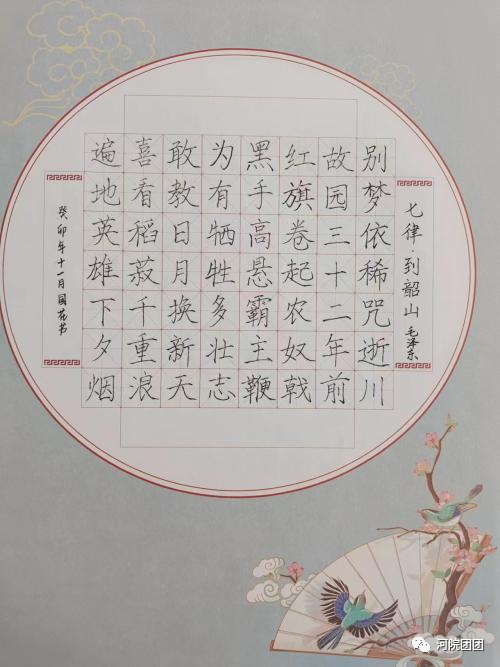 七律·到韶山 毛泽东
别梦依稀咒逝川
故园三十二年前
红旗卷起农奴戟
黑手高悬霸主鞭
为有牺牲多壮志
敢教日月换新天
喜看稻菽千重浪
遍地英雄下夕烟
癸卯年十一月国花书
河院团团